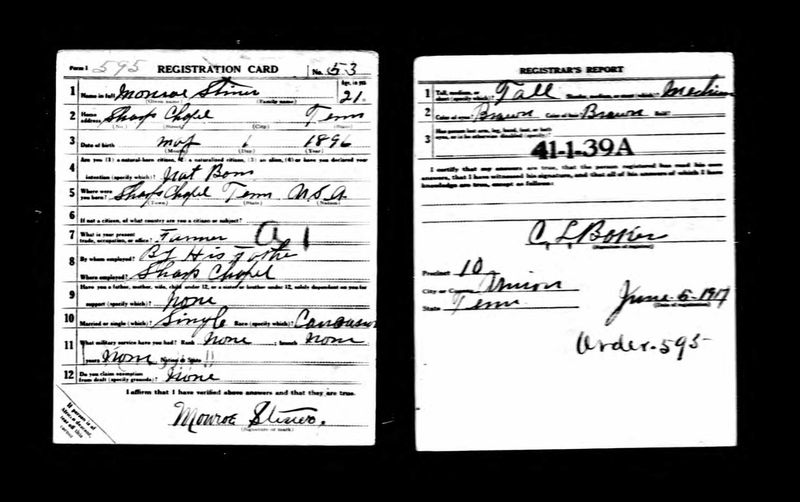 Form 1 595 REGISTRATION CARD No. 53
1 Name in full Monroe Stiner Age, in yrs. 21
(Given name) (Family name)
2 Home address Sharps Chapel Tenn
(No.) (Street) (City) (State)
3 Date of birth may 1 1896
(Month) (Day) (Year)
Are you (1) a natural-born citizen, (2) a naturalized citizen, (3) an alien, (4) or have you declared your
4 intention (specify which)? Nat Born
5 Where were you born? Sharps Chapel Tenn U.S.A
(Town) (State) (Nation)
6 If not a citizen, of what country are you a citizen or subject?
7 What is your present trade, occupation, or office? Farmer a 1
8 By whom employed? By His Father
Where employed? Sharp Chapel
9 Have you a father, mother, wife, child under 12, or a sister or brother under 12, solely dependent on you for
support (specify which)? None
10 Married or single (which)? Single Race (specify which)? Caucasian
11 What military service have you had? Rank None ; branch None
years None Nation or State
12 Do you claim exemption from draft (specify grounds)? None
I affirm that I have verified above answers and that they are true.
Monroe Stiner.
(Signature or mark)
If person is of African descent, tear off this corner
REGISTRAR'S REPORT
1 Tall, medium, or short (specify which)? Tall Slender, medium, or stout (which)? Medium
2 Color of eyes? Brown Color of hair? Brown Bald?
3 Has person lost arm, leg, hand, foot, or both
eyes, or is he otherwise disabled (specify)?
41-1-39A
I certify that my answers are true, that the person registered has read his own
answers, that I have witnessed his signature, and that all of his answers of which I have
knowledge are true, except as follows:
C L Baker
(Signature of registrar)
Precinct 10
City or County Union
State Tenn June-5-1917
(Date of registration)
Order-595